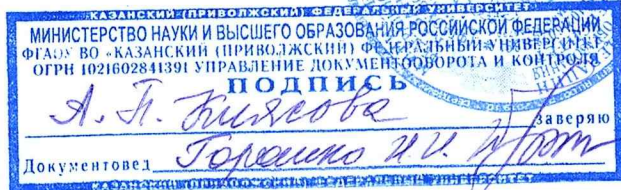 КАЗАНСКИЙ (ПРИВОЛЖСКИЙ) ФЕДЕРАЛЬНЫЙ УНИВЕРСИТЕТ
МИНИСТЕРСТВО НАУКИ И ВЫСШЕГО ОБРАЗОВАНИЯ РОССИЙСКОЙ ФЕДЕРАЦИИ
ФГАОУ ВО «КАЗАНСКИЙ (ПРИВОЛЖСКИЙ) ФЕДЕРАЛЬНЫЙ УНИВЕРСИТЕТ»
ОГРН 1021602841391 УПРАВЛЕНИЕ ДОКУМЕНТООБОРОТА И КОНТРОЛЯ
ПОДПИСЬ
А. П. Киясова
заверяю
Документовед
И.И.
КАЗАНСКИЙ (ПРИВОЛЖСКИЙ) ФЕДЕРАЛЬНЫЙ УНИВЕРСИТЕТ